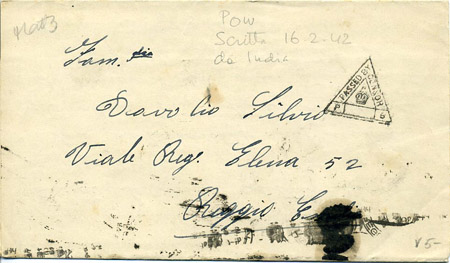 POW
Scritta 16-2-42
da India
Fam.
Davolio Silvio
PASSED BY CENSOR
P 6
Viale Reg. Elena 52
Reggio
V5-